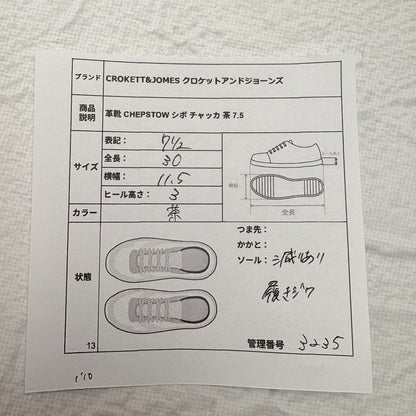 ブランド CROKETT&JOMES クロケットアンドジョーンズ
商品説明 革靴 CHEPSTOW シボ チャッカ 茶 7.5
サイズ
表記： 7 1/2
全長： 30
横幅： 11.5
ヒール高さ： 3
ヒール高さ
横幅
全長
カラー 茶
状態
つま先：
かかと：
ソール： 減りあり
履きジワ
13
管理番号 3235
1'10